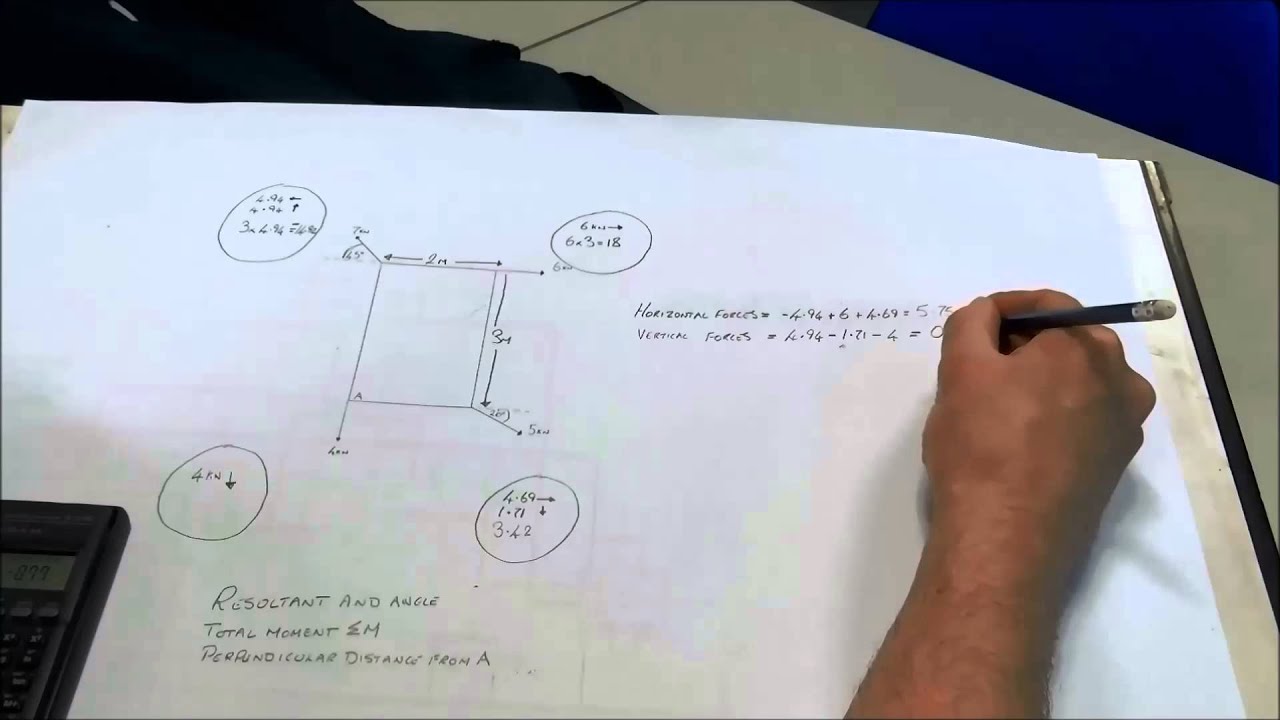 4.94 ←
4.94 ↑
7KN
45°
2M
6KN→
6x3=18
6KN
3M
A
20°
5KN
4KN
HORIZONTAL FORCES = -4.94+6+4.69 = 5.75
VERTICAL FORCES = 4.94-1.71-4 = 0
4KN ↓
4.69 →
1.71 ↓
3.42
-0.77
RESULTANT AND ANGLE
TOTAL MOMENT ΣM
PERPUNDICULAR DISTANCE FROM A